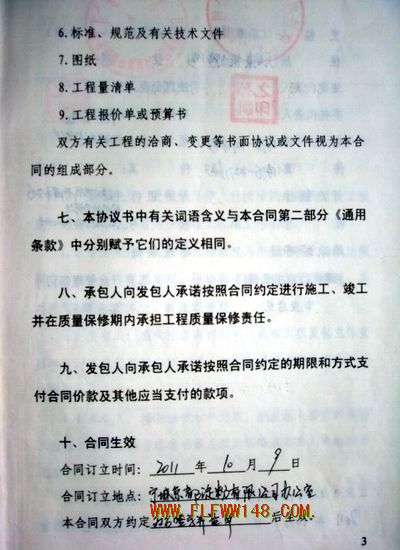 6.标准、规范及有关技术文件
7.图纸
8.工程量清单
9.工程报价单或预算书
双方有关工程的洽商、变更等书面协议或文件视为本合
同的组成部分。
七、本协议书中有关词语含义与本合同第二部分《通用
条款》中分别赋予它们的定义相同。
八、承包人向发包人承诺按照合同约定进行施工、竣工
并在质量保修期内承担工程质量保修责任。
九、发包人向承包人承诺按照合同约定的期限和方式支
付合同价款及其他应当支付的款项。
十、合同生效
合同订立时间：2011年10月9日
合同订立地点：有限公司办公室
本合同双方约定后生效.
WWW.FLEWW148.COM
3